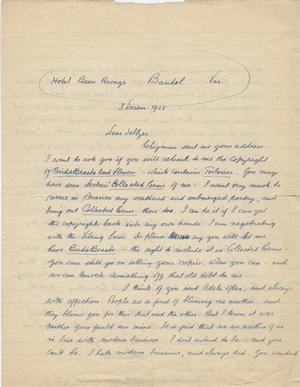 Hotel Beau Rivage Bandol Var
3 Decem. 1928
Dear Seltzer
Seligman sent me your address.
I want to ask you if you will release to me the Copyright
of Birds Beasts and Flowers - which contains Tortoises. You may
have seen Secker's Collected Poems of me. I want very much to
rescue in America my scattered and submerged poetry, and
bring out Collected Poems there too. I can do it if I can get
the copyrights back into my own hands. I am negotiating
with the Viking Press. So please say you will let me
have Birds Beasts - the right to include it in Collected Poems.
You can still go on selling your copies, when you can - and
we can knock something off that old debt to me.
I think of you and Adele often, and always
with affection. People are so fond of blaming one another - and
they blame you for this that and the other. But I know it was
neither your fault nor mine. It is just that we are neither of us
in line with modern business. I don't intend to be - and you
can't be. I hate modern business, and always did. You wanted